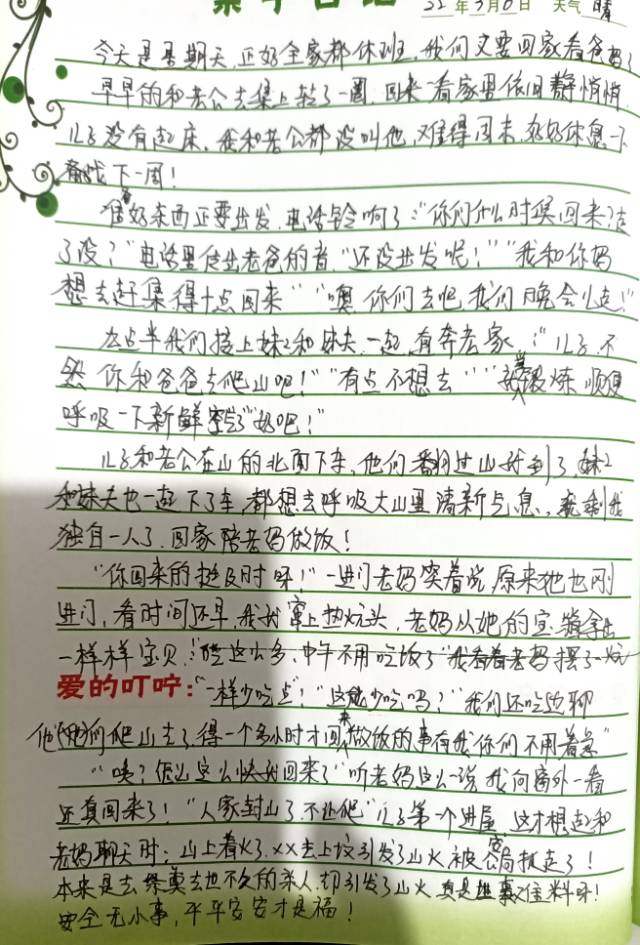 22年3月6日 天气 晴
今天是星期天,正好全家都休班,我们又要回家看爸妈了
早早的和老公去集上转了一圈,回来一看家里依旧静悄悄,
儿子没有起床,我和老公都没叫他,难得周末,好好休息一下
备战下一周!
备好东西正要出发,电话铃响了:“你们什么时候回来?走
了没?”电话里传出老爸的音,“还没出发呢!”“我和你妈
想去赶集得十点回来”“噢,你们去吧,我们晚会儿走!”
九点半我们接上妹2和妹夫,一起有奔老家,:“儿子,不
然你和爸爸去爬山吧!”“有点不想去”“当锻炼,顺便
呼吸一下新鲜空气”“好吧!”
儿子和老公在山的北面下车,他们翻过山就到了,妹2
和妹夫也一起下了车,都想去呼吸大山里清新气息,就剩我
独自一人了,回家陪老妈做饭!
“你回来的挺及时呀!”一进门老妈笑着说,原来她也刚
进门,看时间还早,我就窜上热炕头,老妈从她的宝箱拿出
一样样宝贝,“些这么多,中午不用吃饭了”我看着老妈摆了一炕
爱的叮咛:“一样少吃点”!“这能少吃吗?”我们还吃边聊
他们爬山去了,得一个多小时才回来,做饭的事有我你们不用着急”
“咦?怎么这么快就回来了”听老妈这么一说,我向窗外一看
还真回来了!“人家封山了,不让爬”儿子第一个进屋,这才想起和
老妈聊天时:山上着火了,××去上坟引发了山火,被公安局抓走了!
本来是去祭奠去世不久的亲人,却引发了山火,真是世事难料呀!
安全无小事,平平安安才是福!